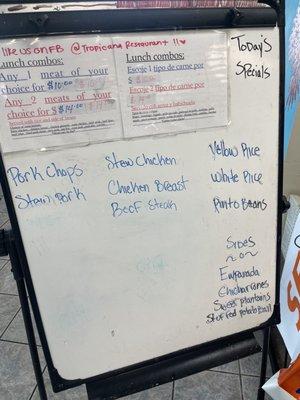 like us on FB @Tropicana Restaurant !!
Lunch combos:
Any 1 meat of your
choice for $10.00
Any 2 meats of your
choice for $14.00
Served with rice and side of beans
Lunch combos:
Escoje 1 tipo de carne por
$
Escoje 2 tipo de carne por
$
Servido con arroz y habichuelas
Today's
Specials
Pork Chops
Steam Pork
Stew Chicken
Chicken Breast
Beef Steak
Yellow Rice
White Rice
Pinto Beans
Sides
Empanada
Chicharrones
Sweet plantains
Stuffed potato Ball